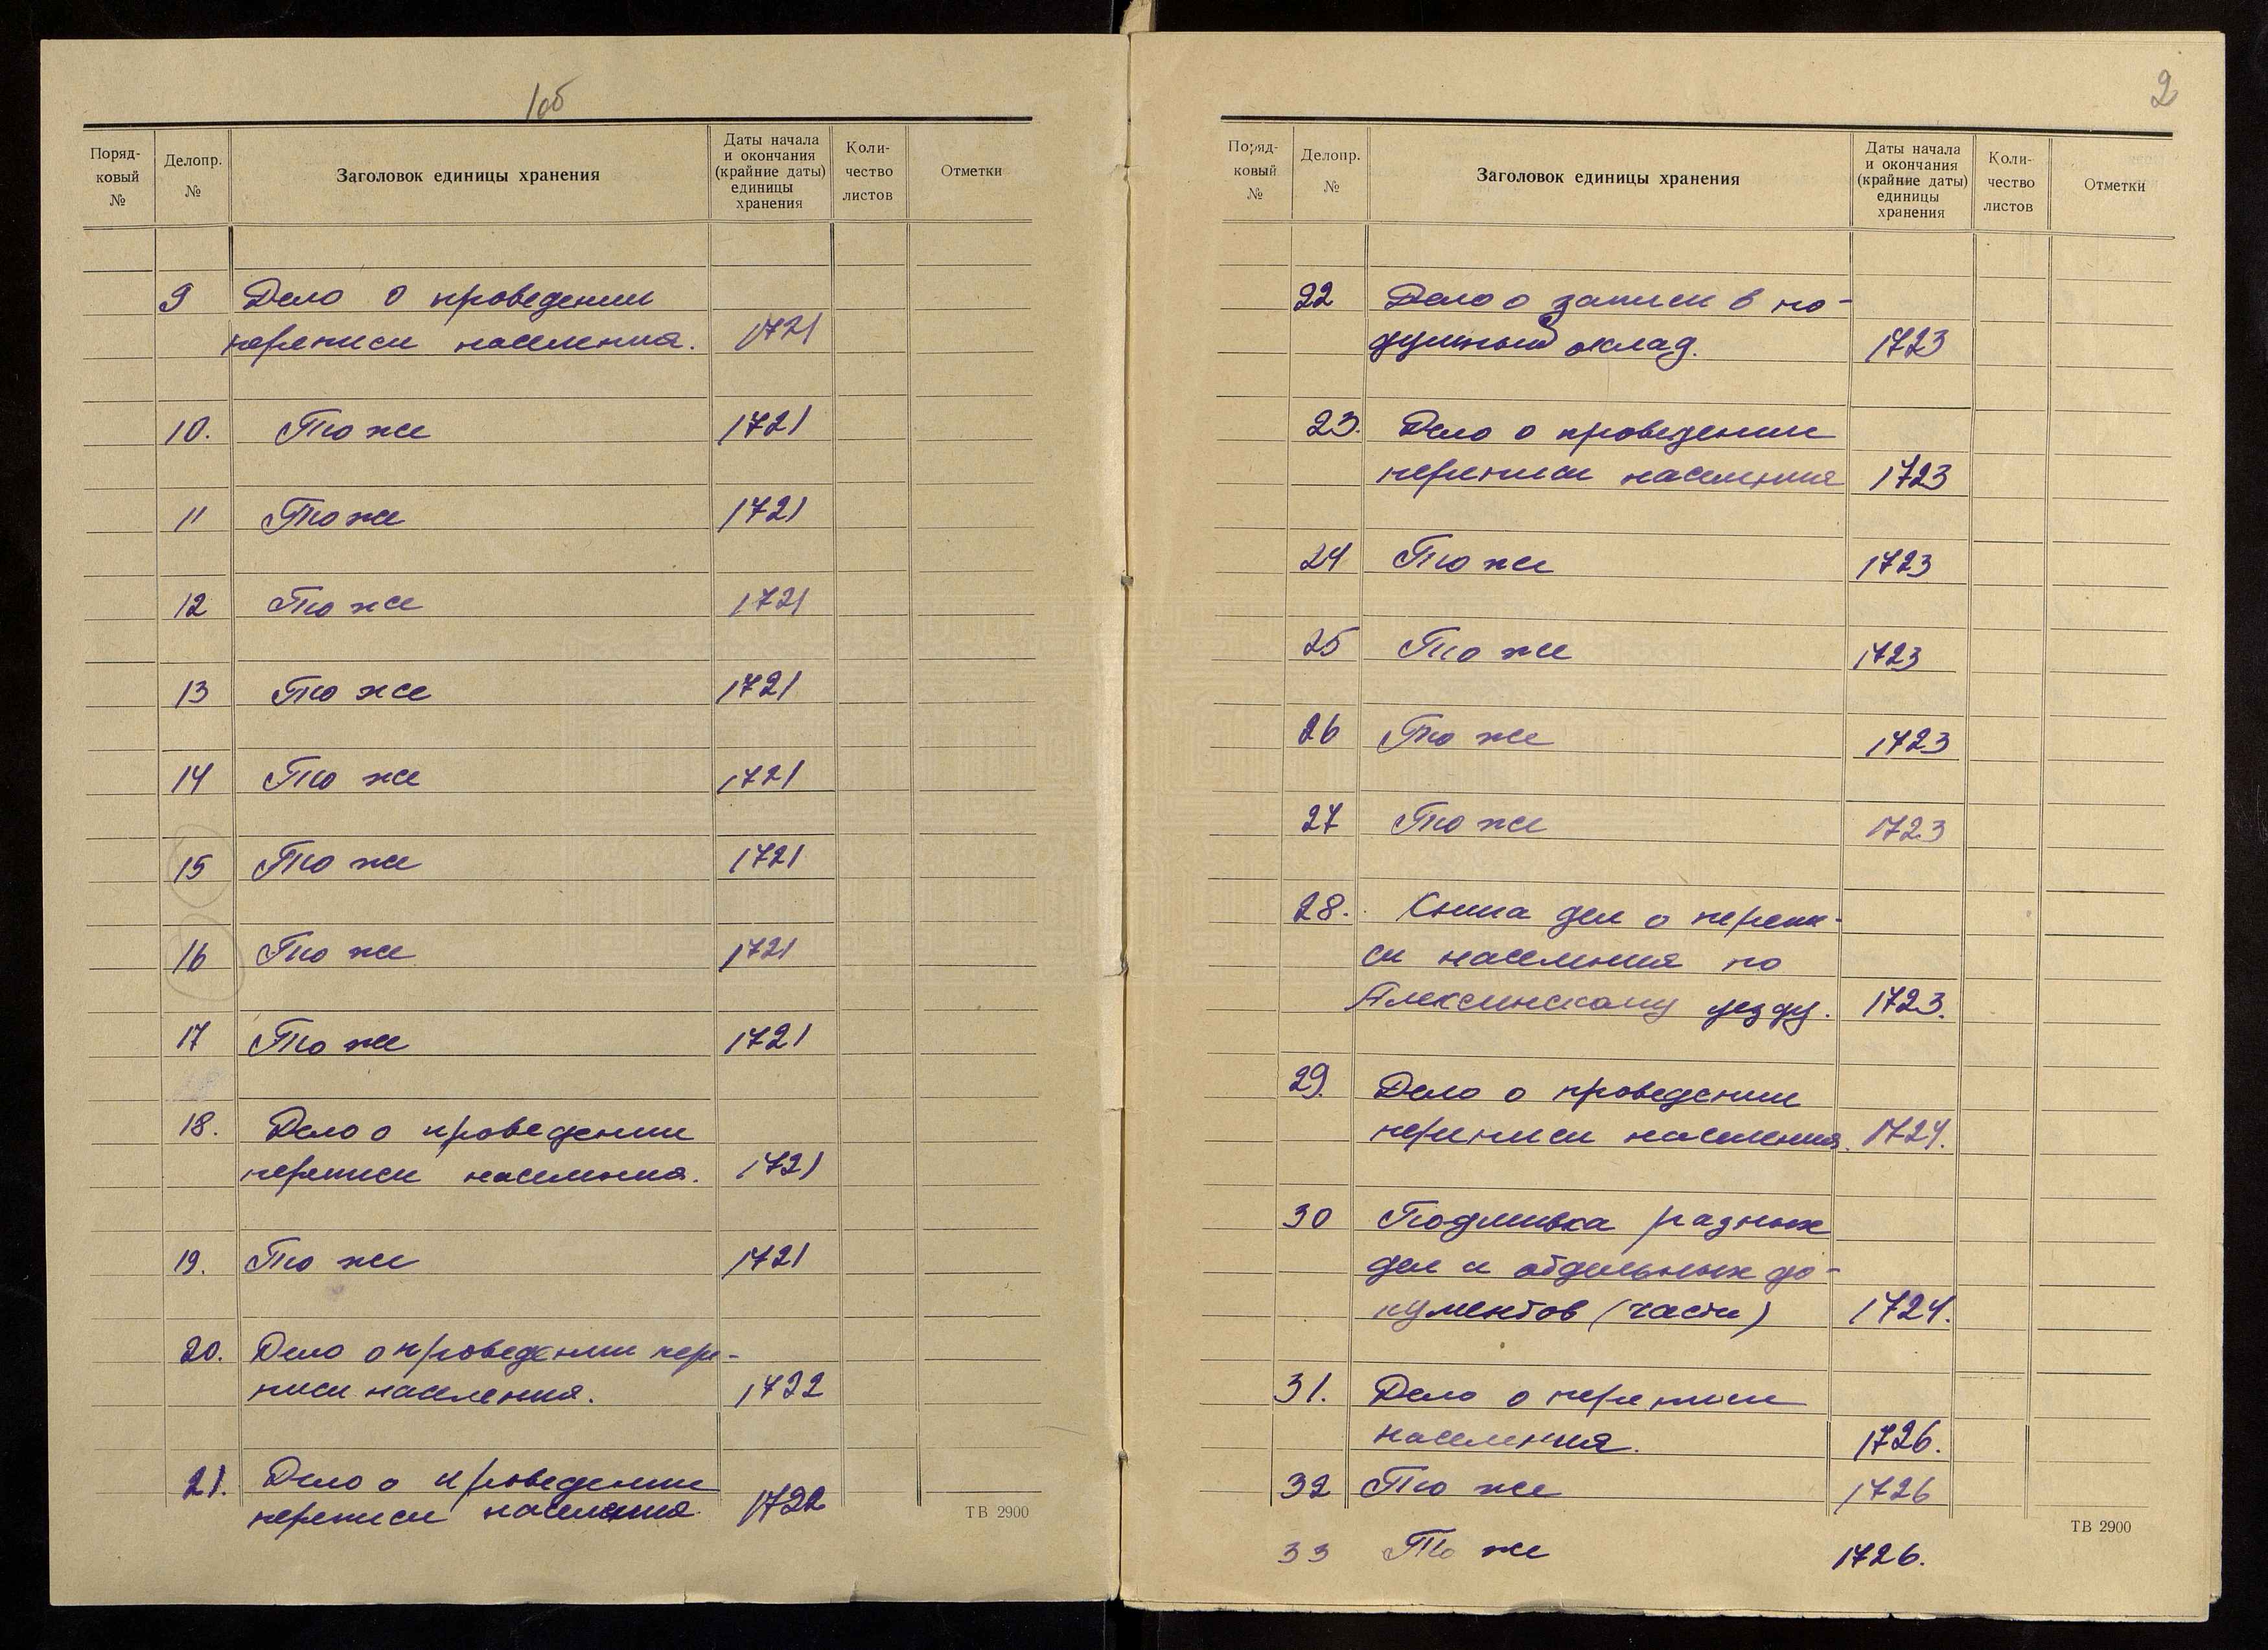 1об
Поряд-
ковый
№
Делопр.
№
Заголовок единицы хранения
Даты начала
и окончания
(крайние даты)
единицы
хранения
Коли-
чество
листов
Отметки
9 Дело о проведении
переписи населения. 1721
10. То же 1721
11 То же 1721
12 То же 1721
13 То же 1721
14 То же 1721
15 То же 1721
16 То же 1721
17 То же 1721
18. Дело о проведении
переписи населения. 1721
19. То же 1721
20. Дело о проведении пере-
писи населения. 1722
21. Дело о проведении
переписи населения. 1722
ТВ 2900
2
Поряд-
ковый
№
Делопр.
№
Заголовок единицы хранения
Даты начала
и окончания
(крайние даты)
единицы
хранения
Коли-
чество
листов
Отметки
22 Дело о записи в по-
душный оклад. 1723
23. Дело о проведении
переписи населения 1723
24 То же 1723
25 То же 1723
26 То же 1723
27 То же 1723
28. Книга дел о перепи-
си населения по
Алексинскому уезду. 1723.
29. Дело о проведении
переписи населения. 1724.
30 Подшивка разных
дел и отдельных до-
кументов (части) 1724.
31. Дело о переписи
населения. 1726.
32 То же 1726
ТВ 2900
33 То же 1726.